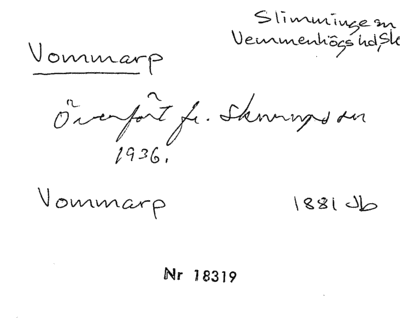 Slimminge sn
Vemmenhögs hd, Sk
Vommarp
Överfört fr. Skurups sn
1936.
Vommarp 1881 Jb
Nr 18319